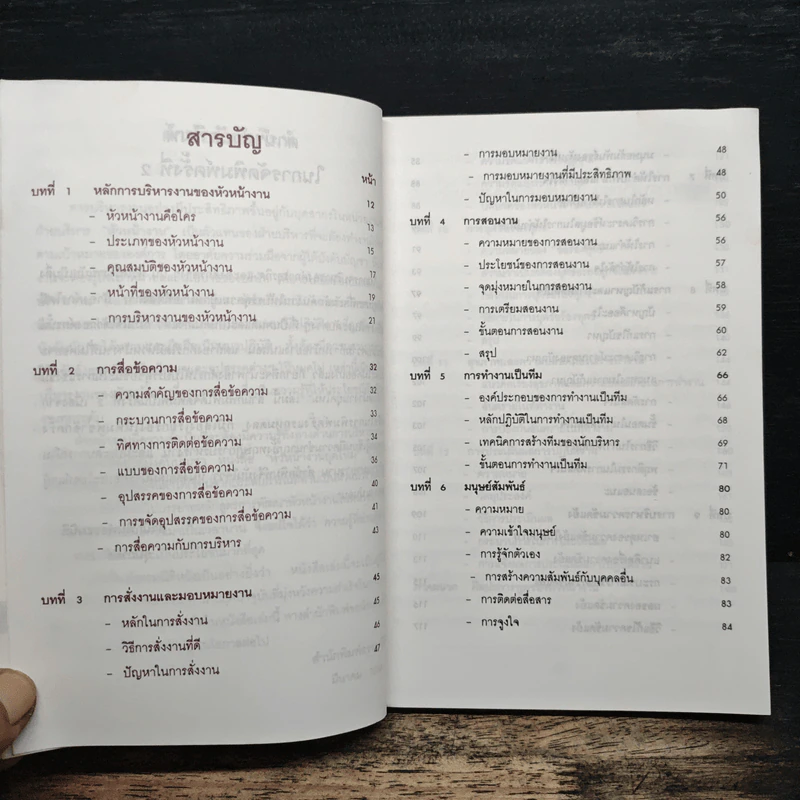 สารบัญ
หน้า
บทที่ 1 หลักการบริหารงานของหัวหน้างาน 12
- หัวหน้างานคือใคร 13
- ประเภทของหัวหน้างาน 15
- คุณสมบัติของหัวหน้างาน 17
- หน้าที่ของหัวหน้างาน 19
- การบริหารงานของหัวหน้างาน 21
บทที่ 2 การสื่อข้อความ 32
- ความสำคัญของการสื่อข้อความ 32
- กระบวนการสื่อข้อความ 33
- ทิศทางการติดต่อข้อความ 34
- แบบของการสื่อข้อความ 36
- อุปสรรคของการสื่อข้อความ 40
- การขจัดอุปสรรคของการสื่อข้อความ 41
- การสื่อความกับการบริหาร 43
บทที่ 3 การสั่งงานและมอบหมายงาน 45
- หลักในการสั่งงาน 45
- วิธีการสั่งงานที่ดี 45
- ปัญหาในการสั่งงาน 47
- การมอบหมายงาน 48
- การมอบหมายงานที่มีประสิทธิภาพ 48
- ปัญหาในการมอบหมายงาน 50
บทที่ 4 การสอนงาน 56
- ความหมายของการสอนงาน 56
- ประโยชน์ของการสอนงาน 57
- จุดมุ่งหมายในการสอนงาน 58
- การเตรียมสอนงาน 59
- ขั้นตอนการสอนงาน 60
- สรุป 62
บทที่ 5 การทำงานเป็นทีม 66
- องค์ประกอบของการทำงานเป็นทีม 66
- หลักปฏิบัติในการทำงานเป็นทีม 68
- เทคนิคการสร้างทีมของนักบริหาร 69
- ขั้นตอนการทำงานเป็นทีม 71
บทที่ 6 มนุษย์สัมพันธ์ 80
- ความหมาย 80
- ความเข้าใจมนุษย์ 80
- การรู้จักตัวเอง 82
- การสร้างความสัมพันธ์กับบุคคลอื่น 83
- การติดต่อสื่อสาร 83
- การจูงใจ 84